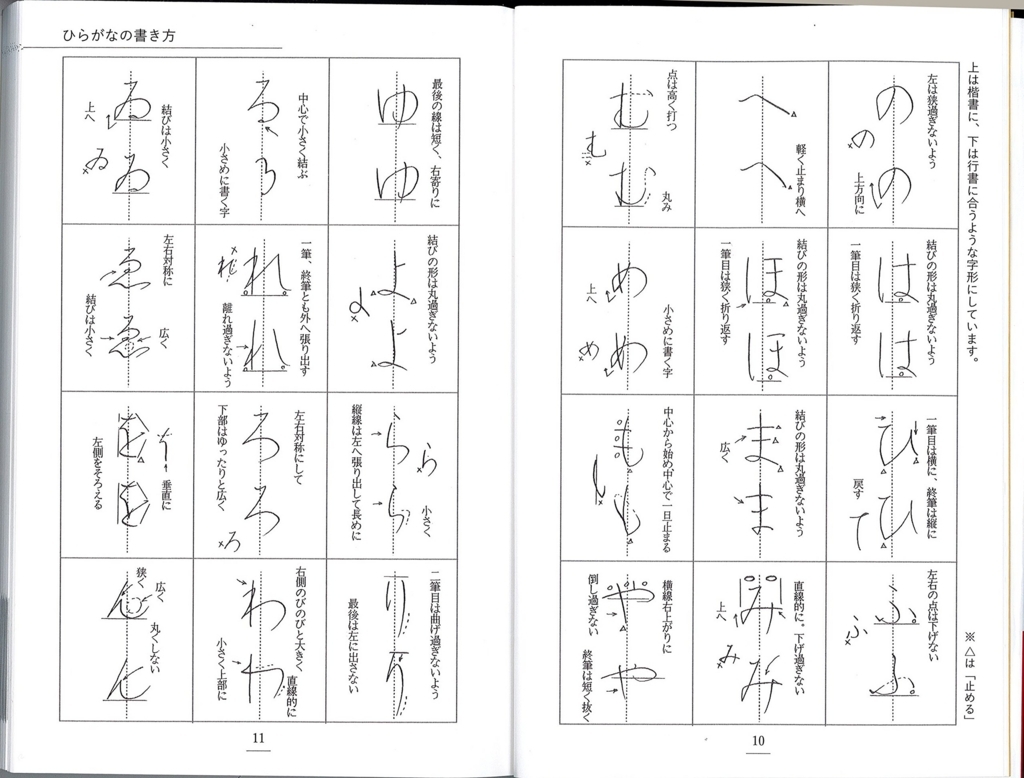 上は楷書に、下は行書に合うような字形にしています。
※△は「止める」
左は狭過ぎないよう
の
の
の
上方向に
結びの形は丸過ぎないよう
一筆目は狭く折り返す
は
は
一筆目は横に、終筆は縦に
ひ
ひ
戻す
左右の点は下げない
ふ
ふ
ふ
へ
へ
軽く止まり横へ
結びの形は丸過ぎないよう
一筆目は狭く折り返す
ほ
ほ
結びの形は丸過ぎないよう
ま
ま
広く
直線的に。下げ過ぎない
み
み
上へ
み
点は高く打つ
む
む
丸み
む
め
め
小さめに書く字
上へ
め
中心から始め、中心で一旦止まる
も
も
横線右上がりに
や
や
倒し過ぎない
終筆は短く抜く
10
ひらがなの書き方
最後の線は短く、右寄りに
ゆ
ゆ
結びの形は丸過ぎないよう
よ
よ
よ
ら
ら
ら
小さく
縦線は左へ張り出して長めに
二筆目は曲げ過ぎないよう
り
り
最後は左に出さない
中心で小さく結ぶ
る
る
小さめに書く字
一筆、終筆とも外へ張り出す
れ
れ
れ
離れ過ぎないよう
左右対称にして
ろ
ろ
ろ
下部はゆったりと広く
右側のびのびと大きく
直線的に
わ
わ
小さく上部に
結びは小さく
ゐ
ゐ
上へ
ゐ
左右対称に
広く
ゑ
ゑ
結びは小さく
垂直に
を
を
左側をそろえる
狭く
広く
丸くしない
ん
ん
11